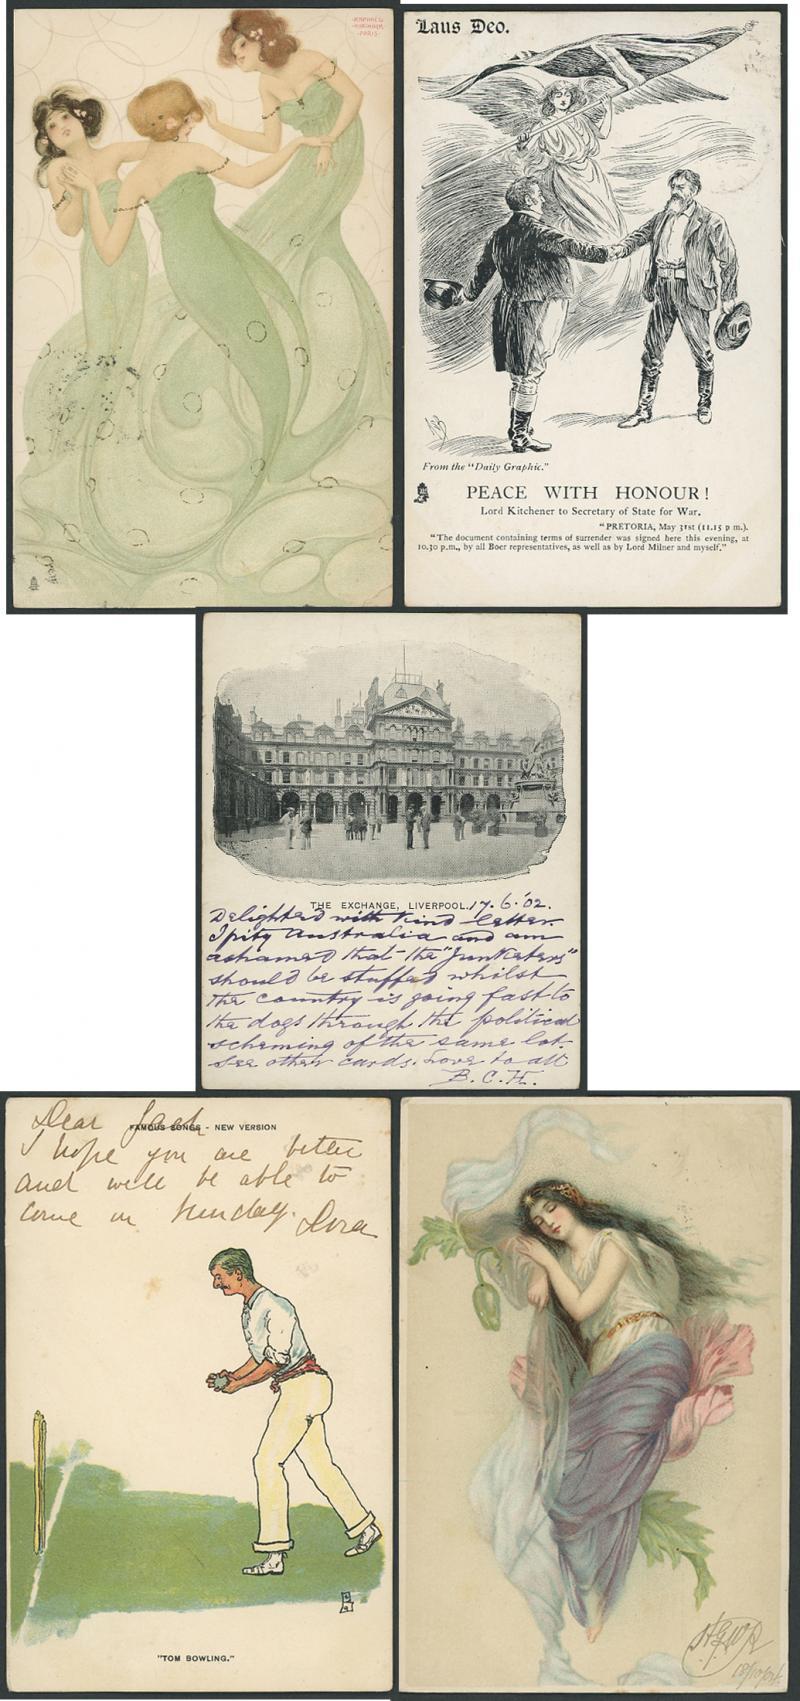 RAPHAEL
KIRCHNER
PARIS
Laus Deo.
From the "Daily Graphic."
PEACE WITH HONOUR!
Lord Kitchener to Secretary of State for War.
"PRETORIA, May 31st (11.15 p m.).
"The document containing terms of surrender was signed here this evening, at
10.30 p.m., by all Boer representatives, as well as by Lord Milner and myself."
THE EXCHANGE, LIVERPOOL. 17.6.'02.
Delighted with kind letter.
I pity Australia and am
ashamed that the "Junketers"
should be stuffed whilst
the country is going fast to
the dogs through the political
scheming of the same lot.
See other cards. Love to all
B.C.H.
Dear Jack
FAMOUS SONGS - NEW VERSION
I hope you are better
and will be able to
come on Sunday. Dora
"TOM BOWLING."